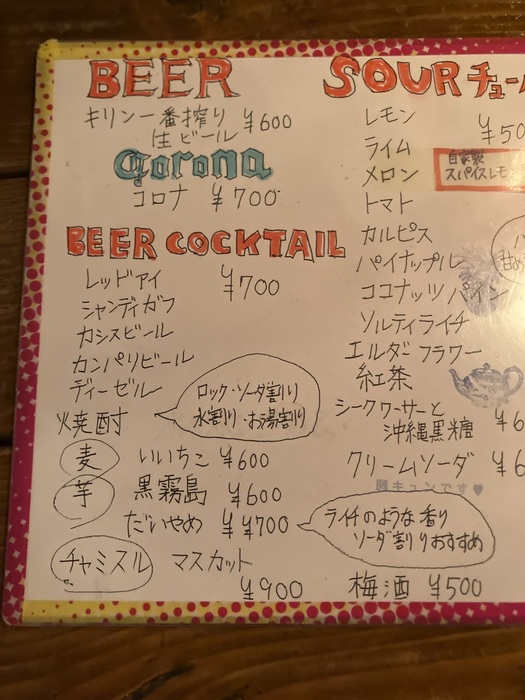 BEER
キリン一番搾り ¥600
生ビール
Corona
コロナ ¥700
BEER COCKTAIL
レッドアイ ¥700
シャンディガフ
カシスビール
カンパリビール
ディーゼル
焼酎
ロック・ソーダ割り
水割り・お湯割り
麦 いいちこ ¥600
芋 黒霧島 ¥600
だいやめ ¥700
ライチのような香り
ソーダ割りおすすめ
チャミスル マスカット
¥900
SOUR チュー
レモン
ライム
メロン
自家製
スパイスレモ
トマト
カルピス
パイナップル
ココナッツパイン
ソルティライチ
エルダーフラワー
紅茶
シークワーサーと
沖縄黒糖 ¥6
クリームソーダ ¥6
キュンです♥
梅酒 ¥500